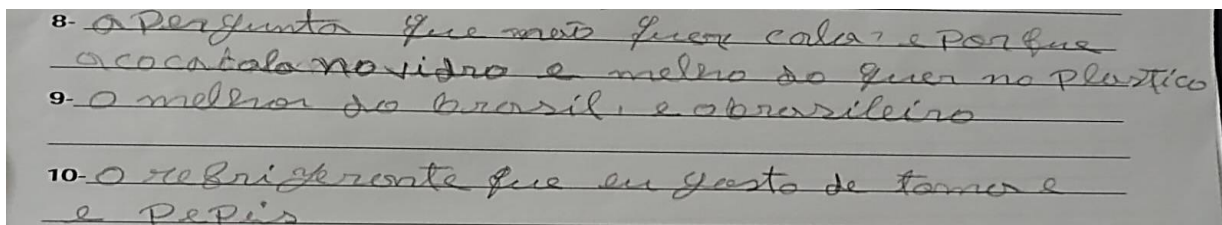 8- a pergunta que mão quere cala, e por que
a coca bola no vidro e melho do quer no plastico
9- O melhor do brasil, e o brasileiro
10- O refrigerante que eu gosto de tomar e
e pepis